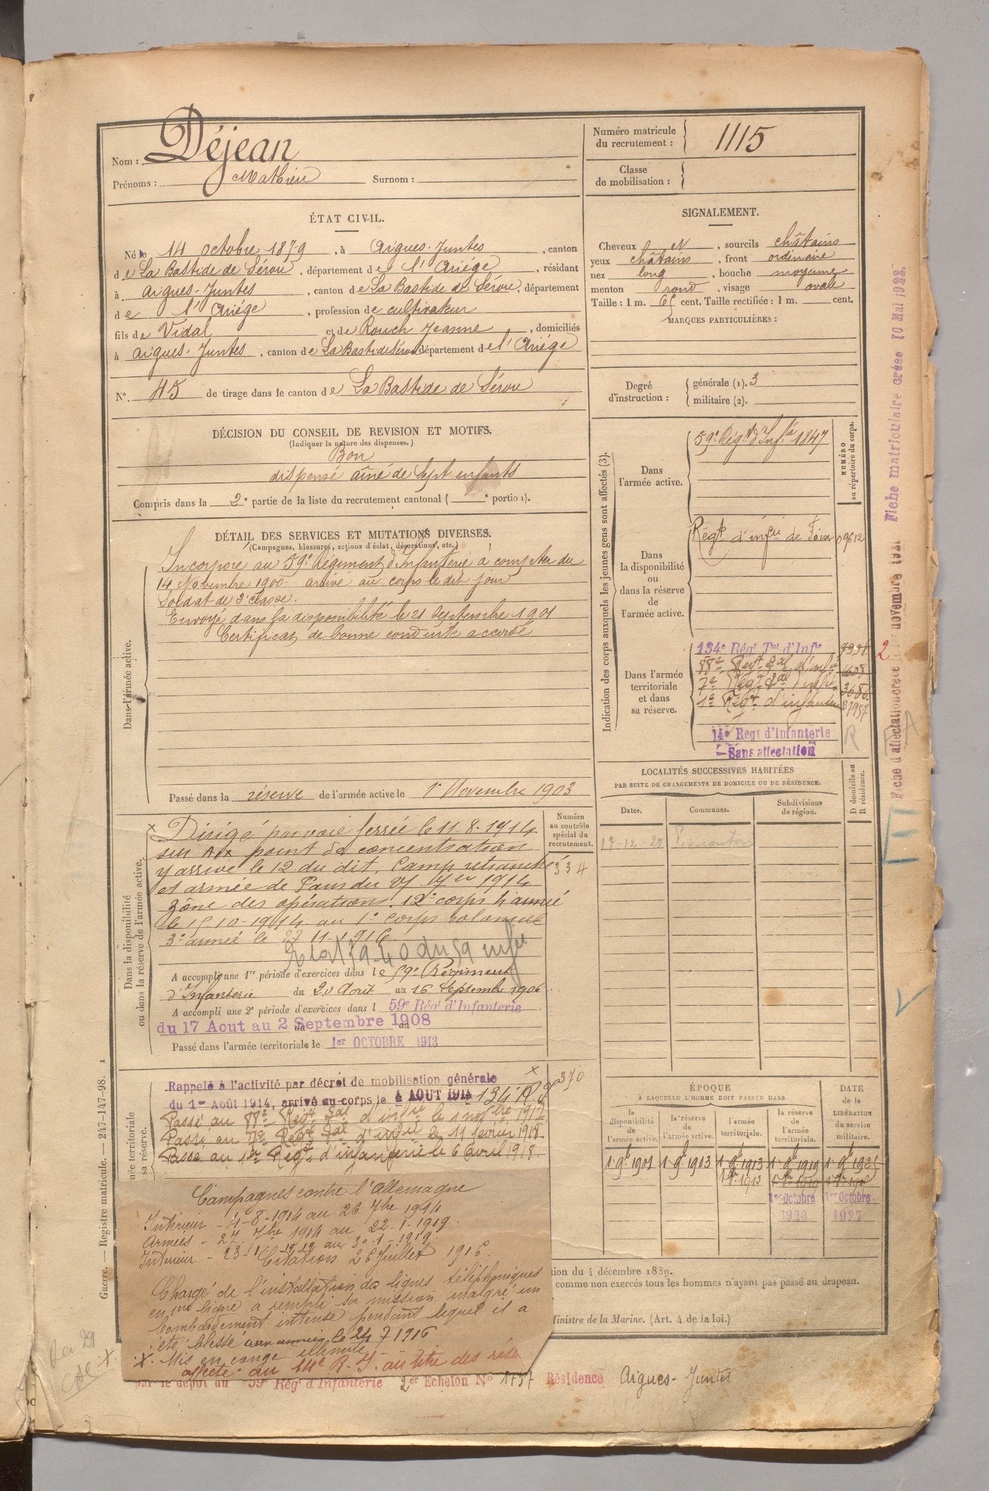 Nom : Déjean
Prénoms : Mathieu Surnom :
Numéro matricule du recrutement : 1115
Classe de mobilisation :
ÉTAT CIVIL.
Né le 14 octobre 1879, à Aigues-Juntes, canton
de La Bastide de Sérou, département de l'Ariège, résidant
à Aigues-Juntes, canton de La Bastide de Sérou, département
de l'Ariège, profession de cultivateur
fils de Vidal et de Rouch Jeanne, domiciliés
à Aigues-Juntes, canton de La Bastide de Sérou département de l'Ariège
N° 45 de tirage dans le canton de La Bastide de Sérou
SIGNALEMENT.
Cheveux N, sourcils châtains
yeux châtains, front ordinaire
nez long, bouche moyenne
menton rond, visage ovale
Taille : 1 m. cent. Taille rectifiée : 1 m. cent.
MARQUES PARTICULIÈRES :
Degré d'instruction : générale (1). 3
militaire (2).
DÉCISION DU CONSEIL DE REVISION ET MOTIFS.
(Indiquer la nature des dispenses.)
Bon
dispensé aîné de sept enfants
Compris dans la 2e partie de la liste du recrutement cantonal ( e portion).
DÉTAIL DES SERVICES ET MUTATIONS DIVERSES.
(Campagnes, blessures, actions d'éclat, décorations, etc.)
Dans l'armée active.
Incorporé au 59e Régiment d'Infanterie à compter du
14 Novembre 1900. arrivé au corps le dit jour
Soldat de 2e classe.
Envoyé dans la disponibilité le 21 Septembre 1901
Certificat de bonne conduite accordé
Passé dans la réserve de l'armée active le 1er Novembre 1903
Dans la disponibilité ou dans la réserve de l'armée active.
Numéro au contrôle spécial du recrutement.
334
Dirigé par voie ferrée le 11-8-1914
sur Aix point de concentration
y arrivé le 12 du dit. Camp retranché
et armée de Paris du
Zône des opérations, 12e corps
le 15-10-1914 au 1er corps colonial
3e armée le 27-11-1916
A accompli une 1re période d'exercices dans le 59e Régiment
d'Infanterie du 20 Août au 16 Septembre 1906
A accompli une 2e période d'exercices dans l 59e Rég' d'Infanterie
du 17 Aout au 2 Septembre 1908
Passé dans l'armée territoriale le 1er OCTOBRE 1913
Rappelé à l'activité par décret de mobilisation générale
du 1er Août 1914, arrivé au corps le 4 AOUT 1914 134 R
370
Passé au 88e Régt d'infie le 1 1917
Passé au 7e Régt d'infie le 11 février 1918
Passé au 1er Régt d'infanterie le 6 avril 1918.
Campagnes contre l'Allemagne
Intérieur - 4-8-1914 au 26 7bre 1914
Armées - 27 7bre 1914 au 22-1-1919.
Intérieur - 23-1-1919 au 30-1-1919.
Citation 28 Juillet 1916.
Chargé de l'installation de lignes téléphoniques
en 1re ligne a rempli sa mission malgré un
bombardement intense pendant lequel il a
été blessé le 24 7 1916
Mis en congé illimité
affecté au 14e R.I. au titre des rés.
par le dépôt du 59e Rég' d'Infanterie 2e Echelon N° 1737 Résidence Aigues-Juntes
Indication des corps auxquels les jeunes gens sont affectés (3).
NUMÉRO au répertoire du corps.
Dans l'armée active.
59e Régt d'Infie 1847
Dans la disponibilité ou dans la réserve de l'armée active.
Régt d'infie de Foix 09612
Dans l'armée territoriale et dans sa réserve.
134e Régt Tal d'Infie
88e Régt d'infie
7e Régt d'infie
1er Régt d'infanterie
14e Régt d'Infanterie
Sans affectation
R
LOCALITÉS SUCCESSIVES HABITÉES
PAR SUITE DE CHANGEMENTS DE DOMICILE OU DE RÉSIDENCE.
Dates. Communes. Subdivisions de région. D domicile ou R résidence.
ÉPOQUE
À LAQUELLE L'HOMME DOIT PASSER DANS
la disponibilité de l'armée active. la réserve de l'armée active. l'armée territoriale. la réserve de l'armée territoriale. DATE de la LIBÉRATION du service militaire.
1 9bre 1901 1 9bre 1903 1 9bre 1913 1 9bre 1919
1er Octobre 1920 1er Octobre 1927
Fiche matriculaire créée 10 Mai 1922.
Guerre. — Registre matricule. — 247-147-98.
comme non exercés tous les hommes n'ayant pas passé au drapeau.
Ministre de la Marine. (Art. 4 de la loi.)